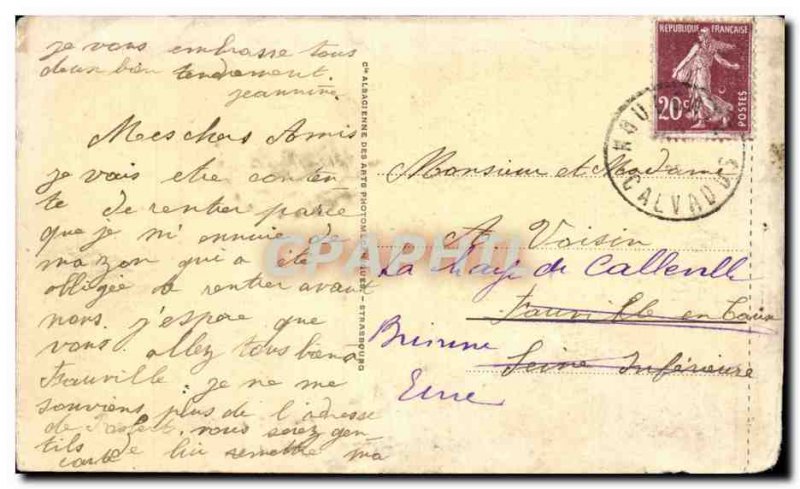 je vous embrasse tous
deux bien tendrement.
jeannine
Mes chers Amis
je vais etre conten
te de rentrer parce
que je m'ennuie de
mazon qui a été
obligée de rentrer avant
nous. j'espère que
vous allez tous bien à
Fauville. je ne me
souviens plus de l'adresse
de vous serez gen
tils de lui remettre ma
carte
Cie ALSACIENNE DES ARTS PHOTOMÉCANIQUES - STRASBOURG
REPUBLIQUE FRANÇAISE
20c
POSTES
CALVADOS
Monsieur et Madame
A. Voisin
La Haye de Calleville
Fauville en Caux
Brionne
Seine Inférieure
Eure
CPAPHIL